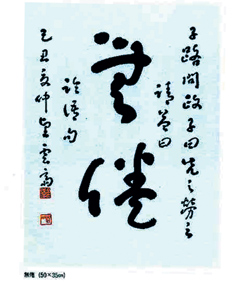 子路問政子曰先之勞之
請益曰
無倦
論語句
己丑夏仲
無倦 (59×35㎝)